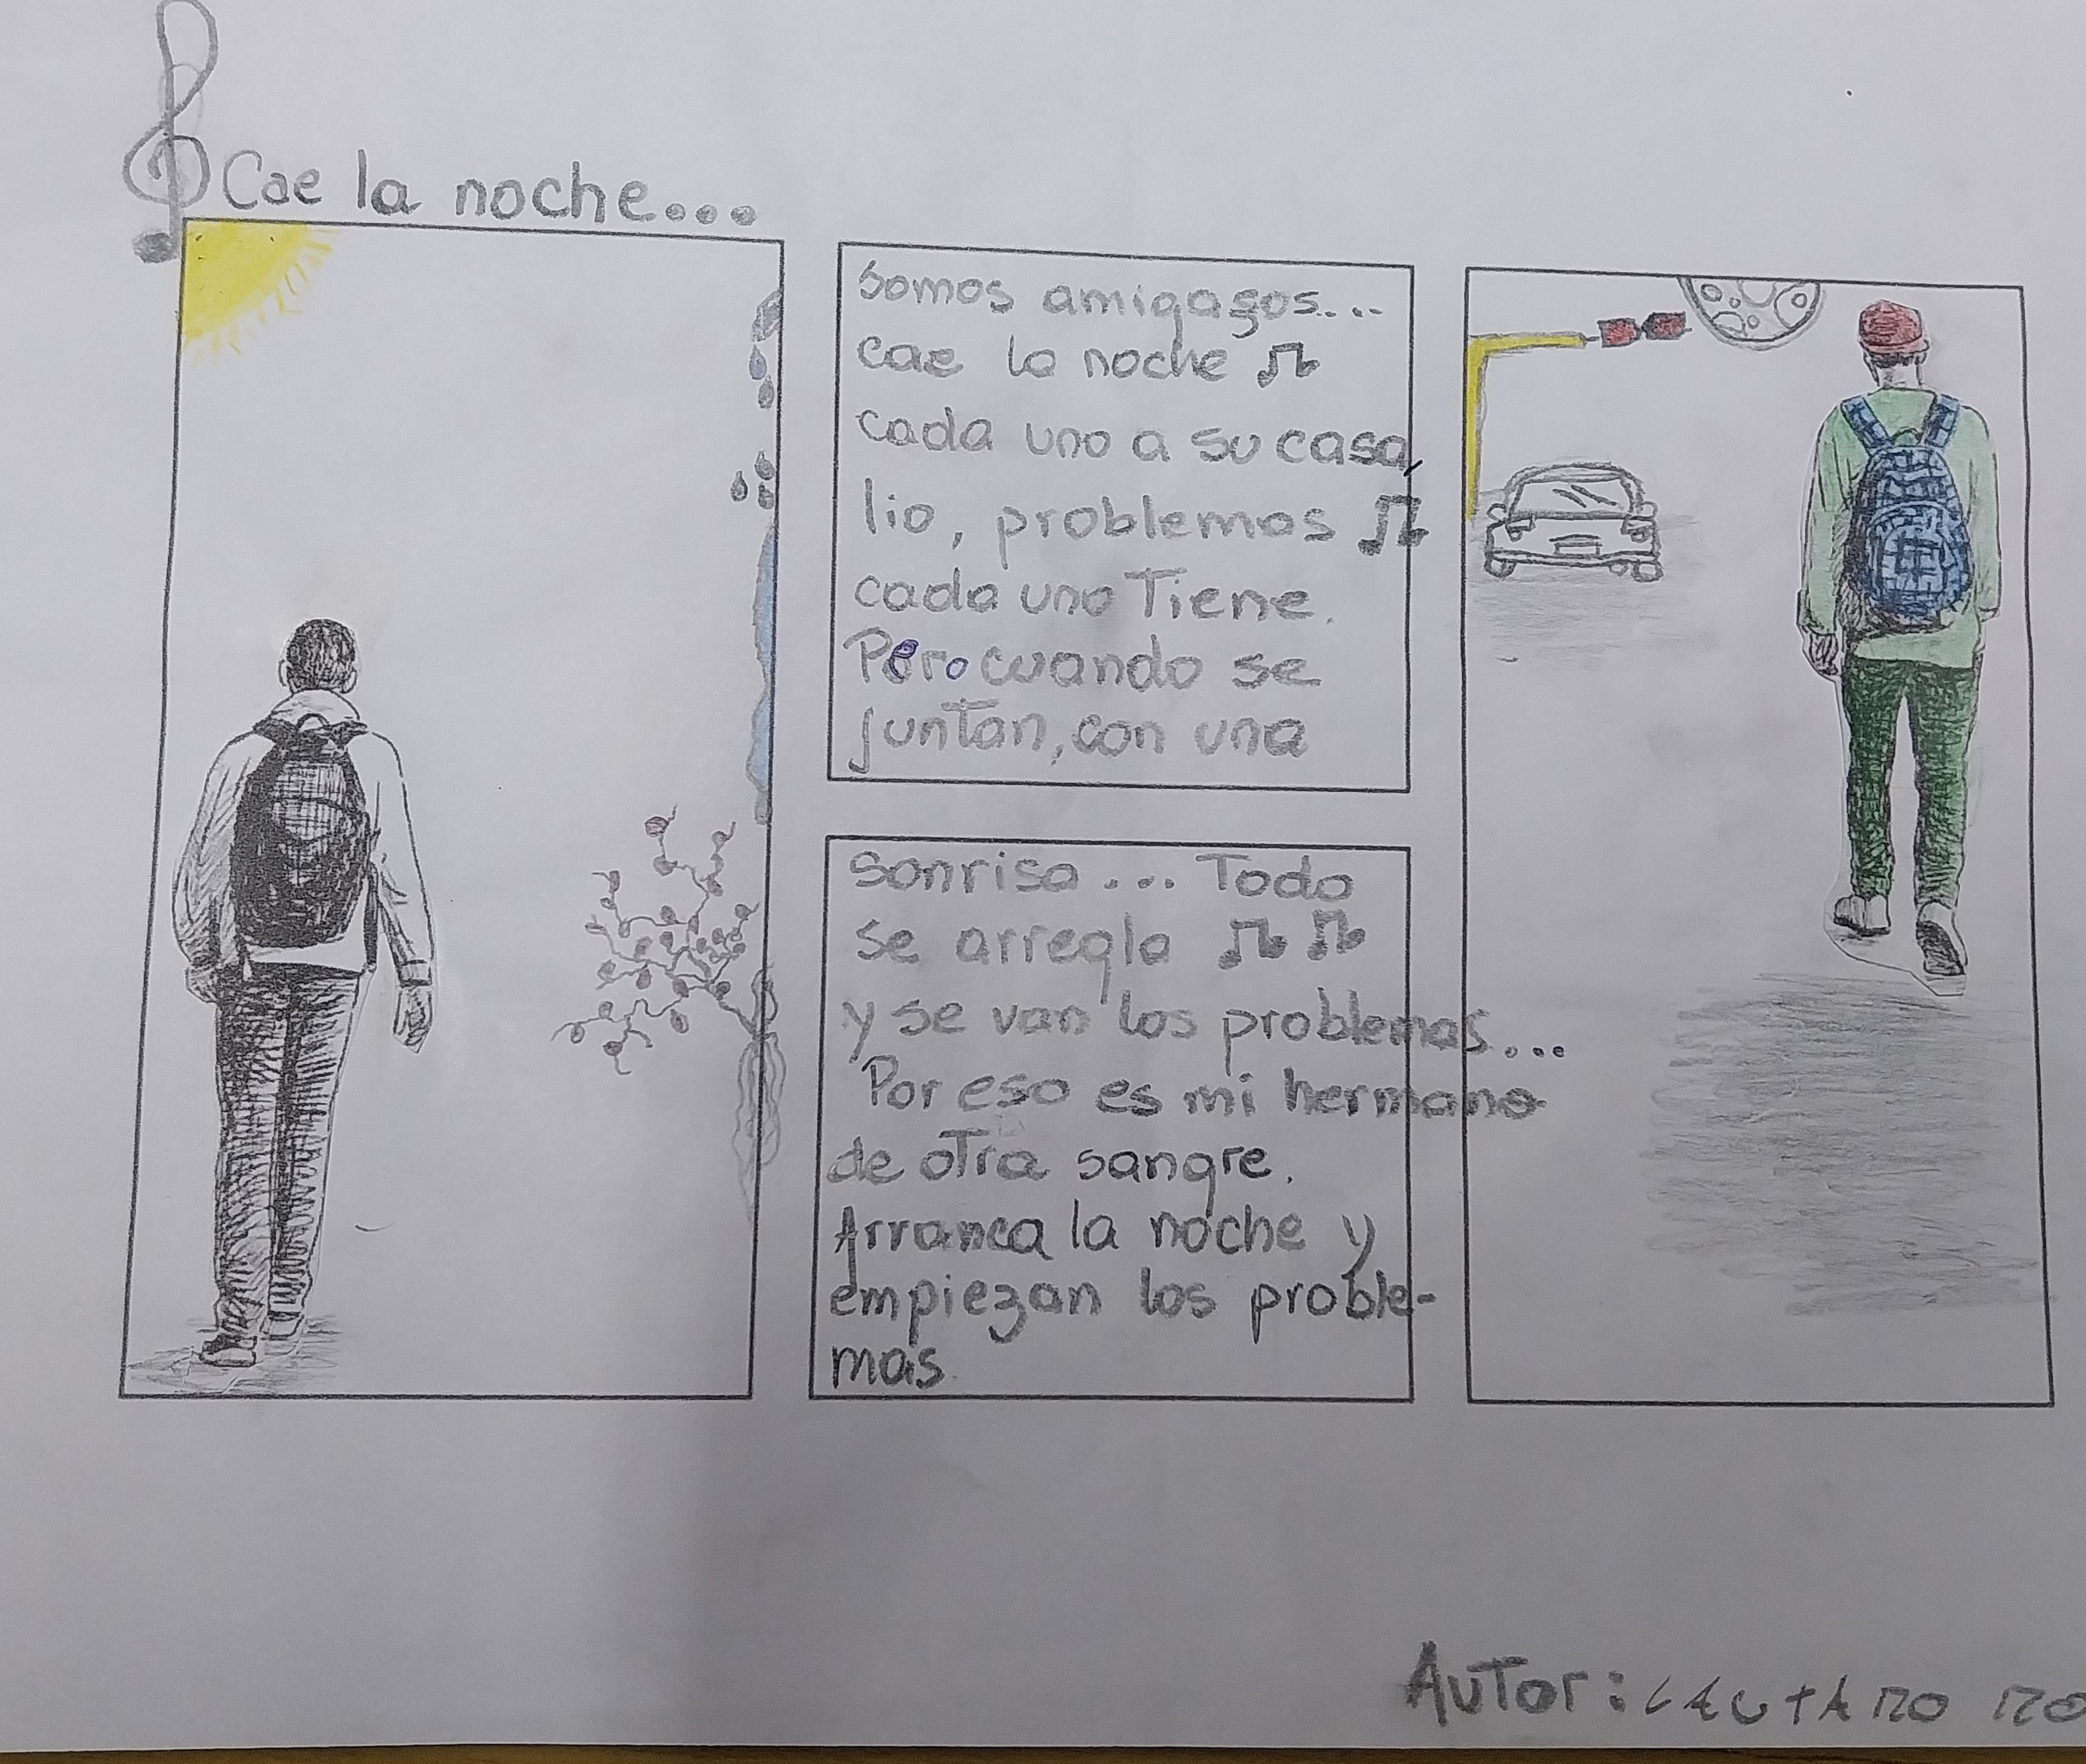 Cae la noche...
Somos amigazos...
cae la noche
cada uno a su casa,
lio, problemas
cada uno Tiene.
Pero cuando se
juntan, con una
sonrisa... Todo
se arregla
y se van los problemas...
Por eso es mi hermano
de otra sangre.
Arranca la noche y
empiezan los proble-
mas.
Autor: LAUTARO RO